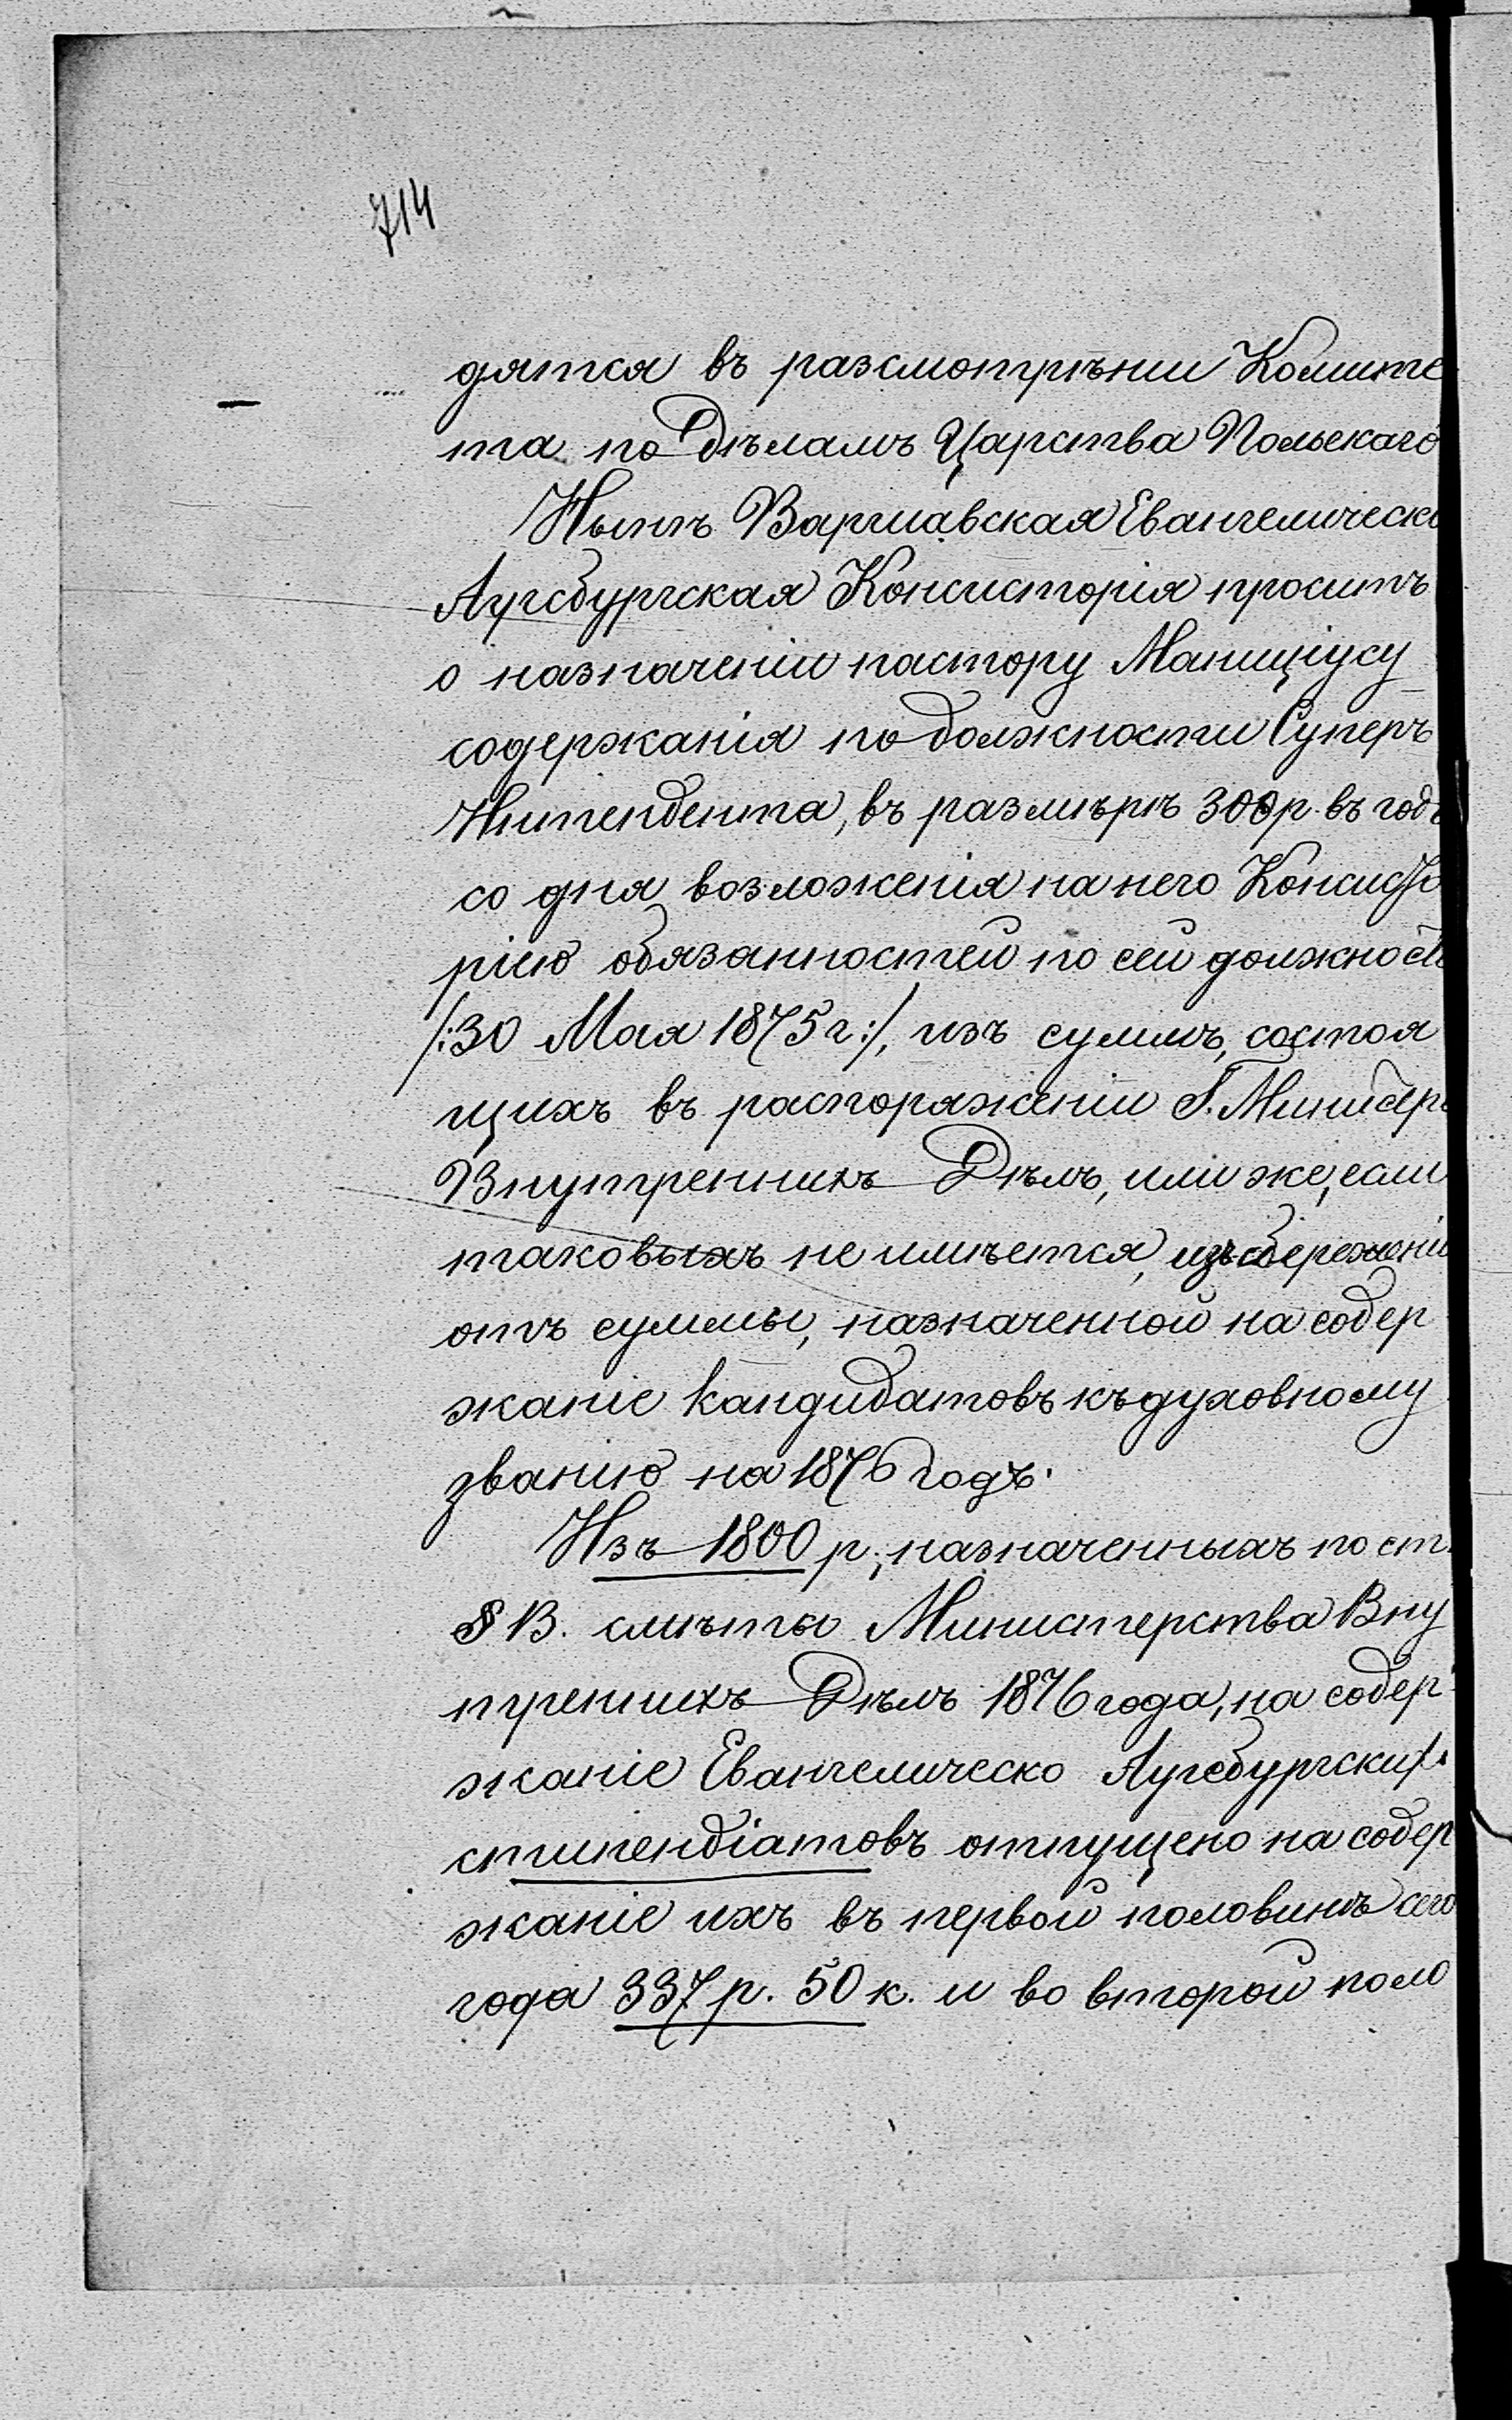 714
дятся въ разсмотрѣнии Комите
та по Дѣламъ Царства Польскаго
Нынѣ Варшавская Евангелическо
Аугсбургская Консисторія проситъ
о назначеніи пастору Маниціусу
содержанія по должности Суперъ
Интендента, въ размѣрѣ 300 р. въ годъ
со дня возложенія на него Консисто
ріею обязанностей по сей должност
/:30 Мая 1875 г:/, изъ суммъ, состоя
щихъ въ распоряженіи Г. Министр
Внутреннихъ Дѣлъ, или же, если
таковыхъ не имѣется, изъ сбереженій
отъ суммы, назначенной на содер
жаніе кандидатовъ къ духовному
званію на 1876 годъ.
Изъ 1800 р., назначенныхъ по ст.
§ 13. смѣты Министерства Вну
треннихъ Дѣлъ 1876 года, на содер
жаніе Евангелическо Аугсбургскихъ
стипендіатовъ отпущено на содер
жаніе ихъ въ первой половинѣ сего
года 337 р. 50 к. и во второй поло